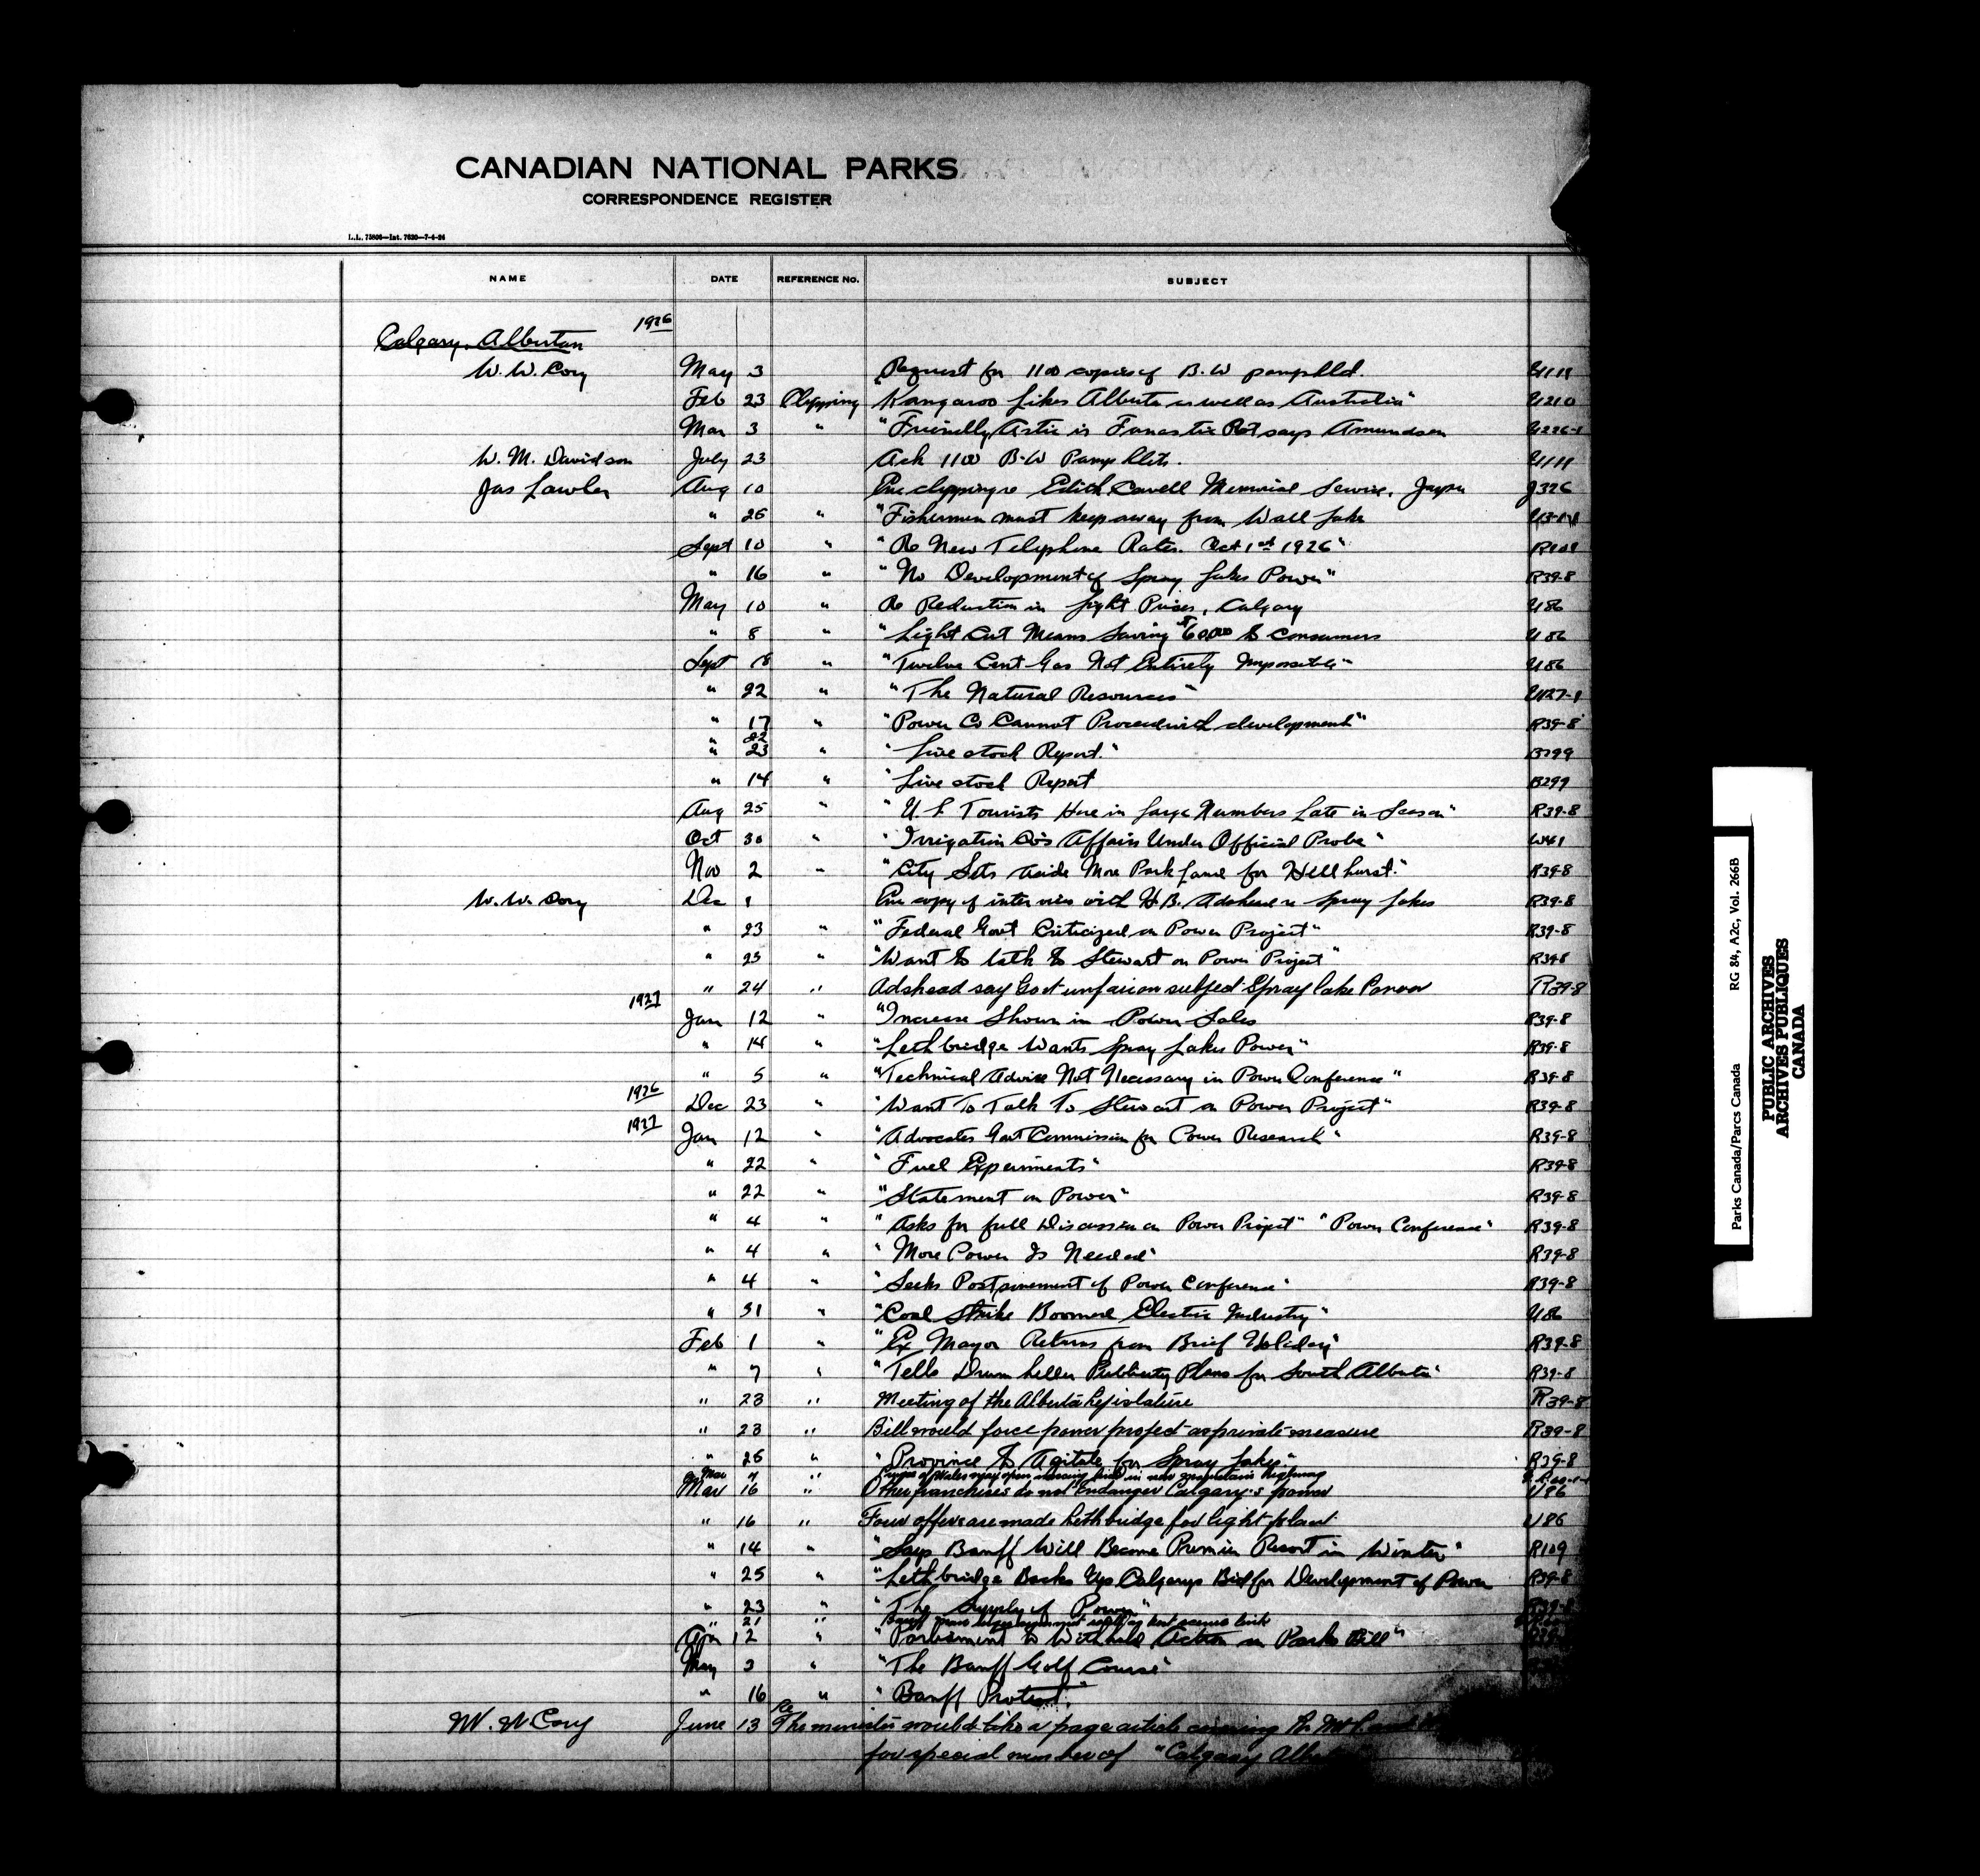 CANADIAN NATIONAL PARKS
CORRESPONDENCE REGISTER
L.L. 73808—Int. 7620—7-4-24
NAME DATE REFERENCE No. SUBJECT
1926
Calgary. Albertan
W. W. Cory May 3 Request for 1100 copies of B.W pamphlet. U111
Feb 23 Clipping Kangaroo Likes Alberta as well as Australia" U210
Mar 3 " "Friendly Artic is Fanastic Rot says Amundsen U226-1
W. M. Davidson July 23 Ack 1100 B.W Pamphlets. U111
Jas Lawler Aug 10 Enc clipping re Edith Cavell Memorial Service, Jasper J326
" 26 " "Fishermen must keep away from Wall Lake
Sept 10 " "Re New Telephone Rates. Oct 1st 1926"
" 16 " "No Development of Spray Lakes Power" R39-8
May 10 " Re Reduction in Light Prices, Calgary U86
" 8 " "Light Cut Means Saving $60,000 to Consumers U86
Sept 18 " "Twelve Cent Gas Not Entirely Impossible" U86
" 22 " "The Natural Resources" U127-1
" 17 " "Power Co Cannot Proceed with development" R39-8
" 22
" 23 " "Live stock Report." B299
" 14 " "Live stock Report B299
Aug 25 " "U.S Tourists Here in Large Numbers Late in Season" R39-8
Oct 30 " "Irrigation Co's Affairs Under Official Probe" W41
Nov 2 " "City Sets Aside More Park Land for Hillhurst." R39-8
W. W. Cory Dec 1 Enc copy of interview with H.B. Adshead re Spray Lakes R39-8
" 23 " "Federal Govt Criticized on Power Project" R39-8
" 23 " "Want to talk to Stewart on Power Project" R39-8
" 24 " Adshead say Govt unfair on subject Spray lake Power R39-8
1927
Jan 12 " "Increase Shown in Power Sales R39-8
" 14 " "Lethbridge Wants Spray Lakes Power" R39-8
" 5 " "Technical Advice Not Necessary in Power Conference" R39-8
1926
Dec 23 " "Want To Talk To Stewart on Power Project" R39-8
1927
Jan 12 " "Advocates Govt Commission for Power Research" R39-8
" 22 " "Fuel Experiments" R39-8
" 22 " "Statement on Power" R39-8
" 4 " "Asks for full Discussion on Power Project" "Power Conference" R39-8
" 4 " "More Power Is Needed" R39-8
" 4 " "Seeks Postponement of Power Conference" R39-8
" 31 " "Coal Strike Boomed Electric Industry" U86
Feb 1 " "Ex Mayor Returns from Brief Holiday" R39-8
" 7 " "Tells Drumheller Publicity Plans for South Alberta" R39-8
" 23 " Meeting of the Alberta Legislature R39-8
" 23 " Bill would force power project as private measure R39-8
" 26 " "Province to Agitate for Spray Lakes." R39-8
Mar 7 " Prince of Wales may open missing link in new mountain highway
Mar 16 " Other franchises do not Endanger Calgary's power U86
" 16 " Four offers are made Lethbridge for light plant U86
" 14 " "Says Banff Will Become Premier Resort in Winter" R109
" 25 " "Lethbridge Backs Up Calgarys Bid for Development of Power R39-8
" 23 " "The Supply of Power" R39-8
" 21 " Banff
Apr 12 " "Parliament to Withhold Action on Parks Bill"
May 3 " "The Banff Golf Course"
" 16 " "Banff Protest."
W. W Cory June 13 Re The minister would like a page article covering
for special number of "Calgary
Parks Canada/Parcs Canada RG 84, A2c, Vol. 266B
PUBLIC ARCHIVES
ARCHIVES PUBLIQUES
CANADA